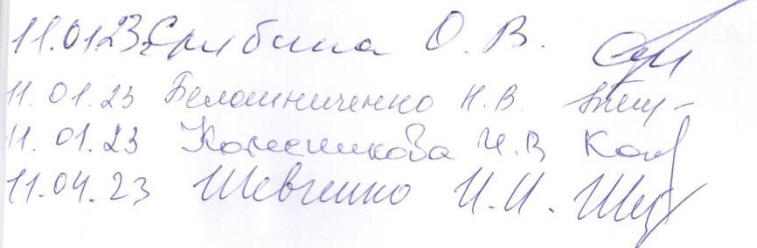 11.01.23 О. В.
11.01.23 Белошниченко Н.В.
11.01.23 Колесникова И.В Кол
11.04.23 Шевченко И.И. Шев